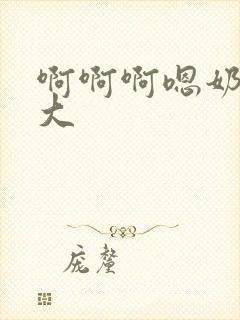 啊啊啊嗯奶
大
庞釐